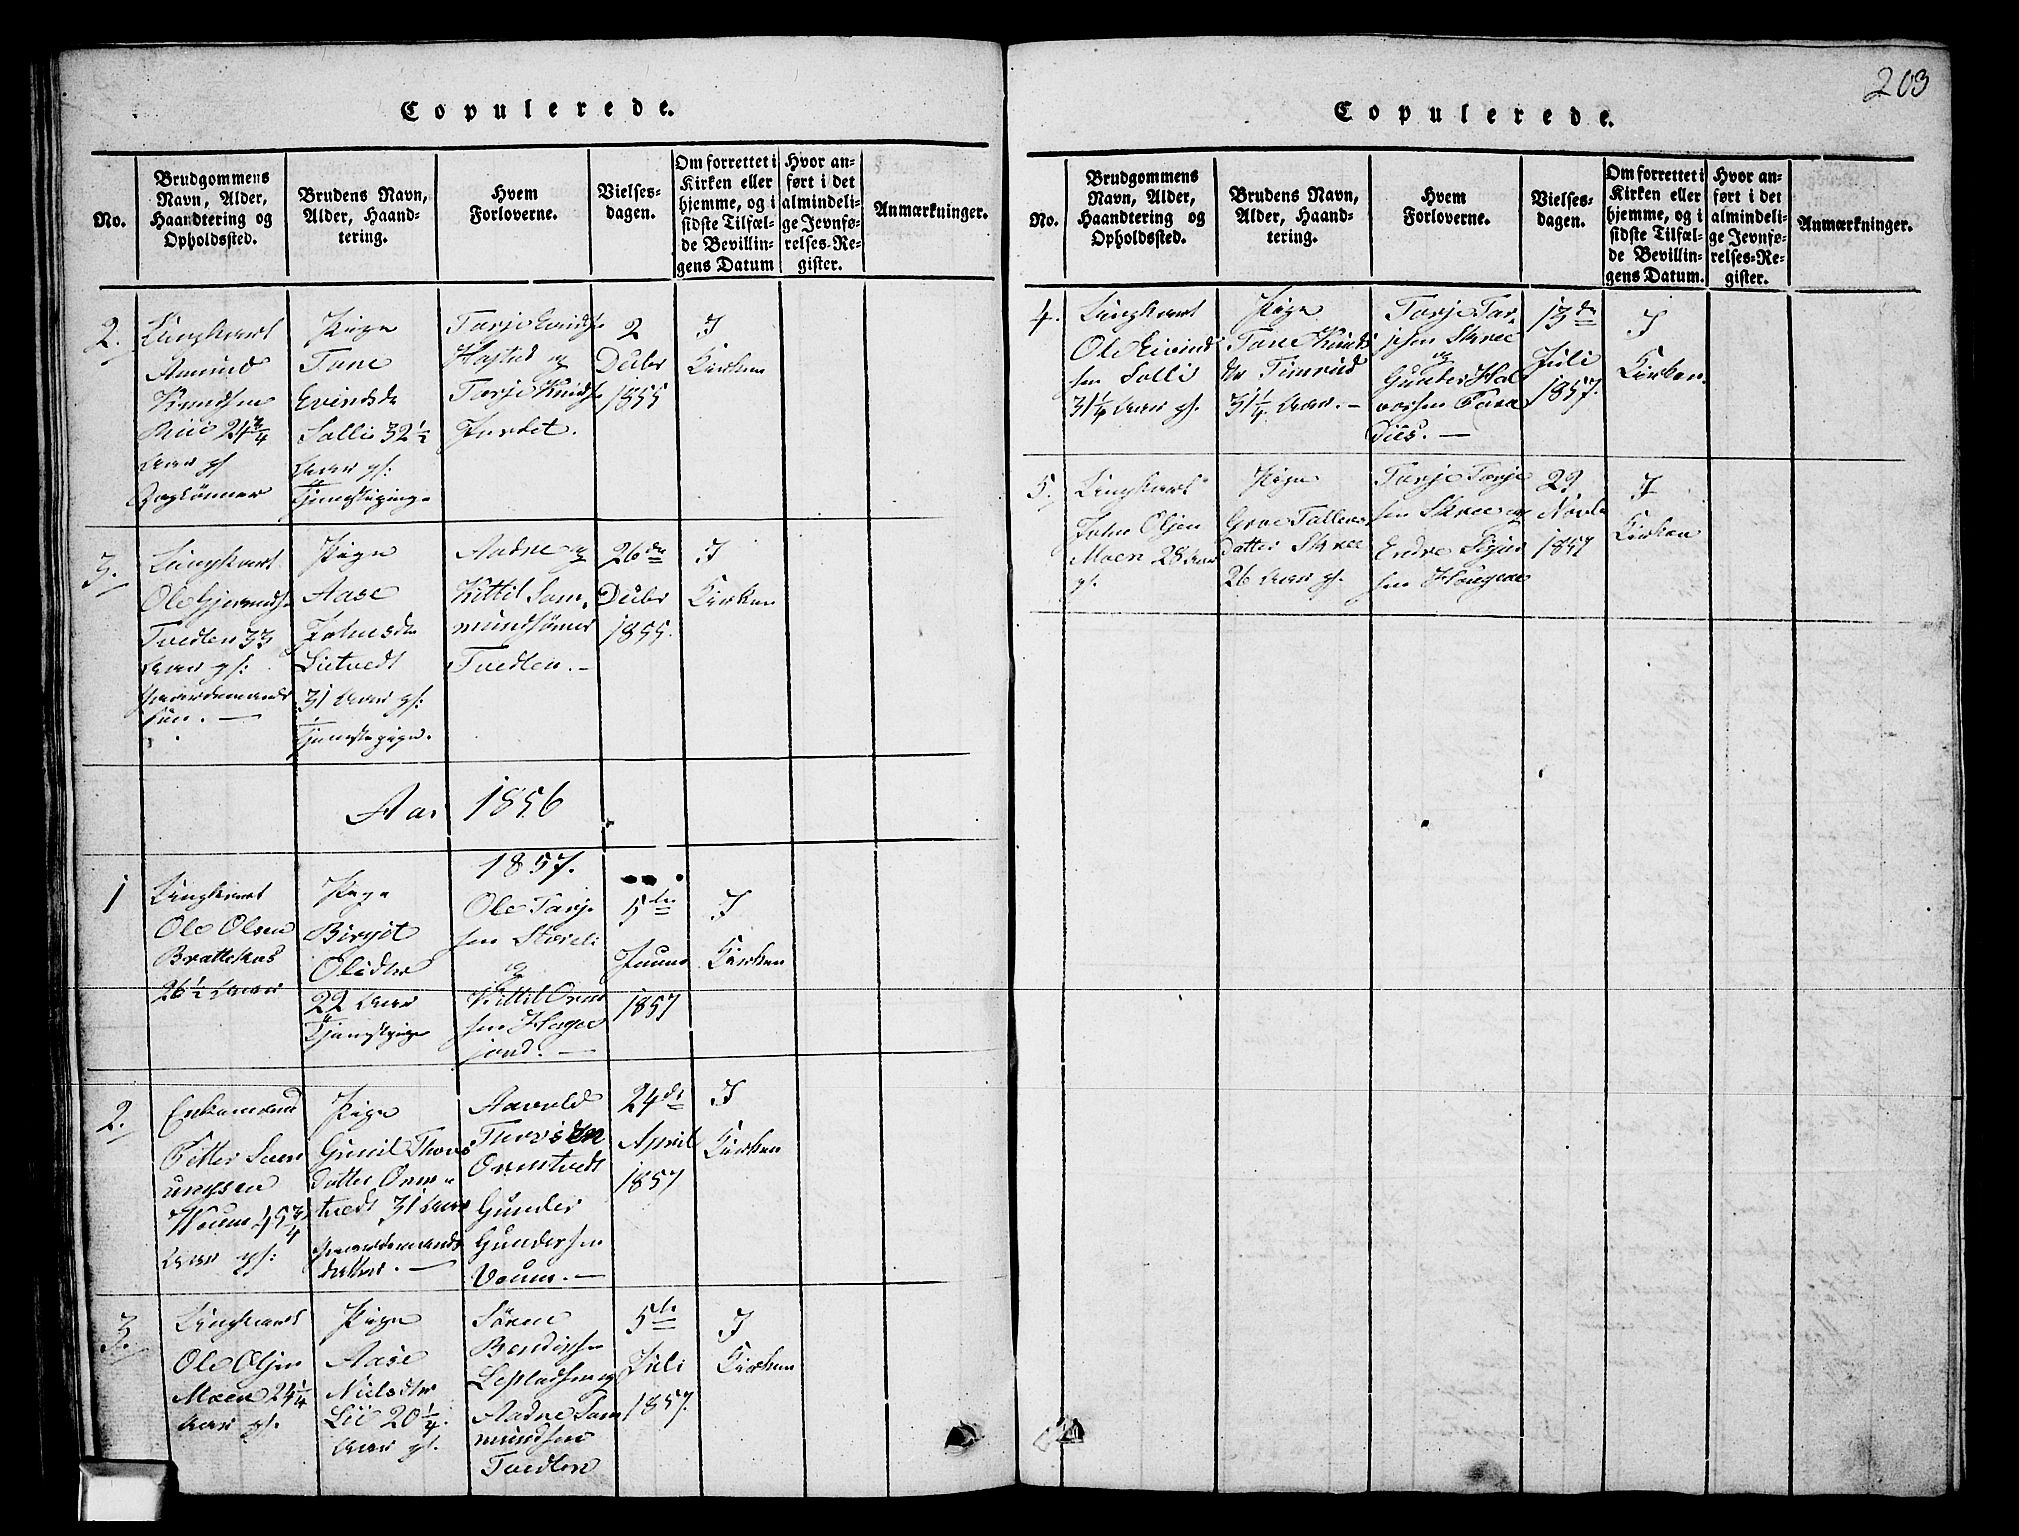 203
Copulerede.
No.
Brudgommens
Navn, Alder,
Haandtering og
Opholdssted.
Brudens Navn,
Alder, Haand-
tering.
Hvem
Forloverne.
Vielses-
dagen.
Om forrettet i
Kirken eller
hjemme, og i
sidste Tilfæl-
de Bevillin-
gens Datum
Hvor an-
ført i det
almindeli-
ge Jevnfø-
relses-Re-
gister.
Anmærkninger.
2.
Ungkarl
Amund
Knudsen
24 3/4
Aar gl
Pige
Tone
Evindsdr
Solli 32 1/2
Aar gl:
Tjenestepige
Tarje Evinds
og
Tarje Knuds
2
Decbr
1855
I
Kirken
3.
Ungkarl
Ole
Tvedten 33
Aar gl:
Gaardmands
søn. —
Pige
Aase
Johnsdr
Lietvedt
31 Aar gl:
Tjenestepige.
Aadne og
Kittil Tam-
mundsøner
Tvedten. —
26de
Decbr
1855.
I
Kirken
Aar 1856
1857.
1
Ungkarl
Ole Olsen
Brattekaas
26 1/2 Aar
Pige
Birgit
Olsdter
22 Aar
Tjenestpige
Ole Tarje
sen
og
Kittil Orm
sen Hage
jord. —
5te
Januar
1857
I
Kirken
2.
Enkemand
Petter Sven
ungsen
45 3/4
Aar gl:
Pige
Gunil Thors
datter Orm-
tvedt 31 Aar
Gaardmands
datter. —
Aavold
Thorsøn
Ormtvedt
Gunder
Gundersen
Voum. —
24de
April
1857
I
Kirken
3.
Ungkarl
Ole Olsen
Moen 24 1/4
Aar gl.
Pige
Aase
Nielsdtr
Lie 20 1/4.
Aar gl.
Sören
Bendixsen
og
Aadne Tam
mundsen
Tvedten
5te
Juli
1857.
I
Kirken
Copulerede.
No.
Brudgommens
Navn, Alder,
Haandtering og
Opholdssted.
Brudens Navn,
Alder, Haand-
tering.
Hvem
Forloverne.
Vielses-
dagen.
Om forrettet i
Kirken eller
hjemme, og i
sidste Tilfæl-
de Bevillin-
gens Datum.
Hvor an-
ført i det
almindeli-
ge Jevnfø-
relses-Re-
gister.
Anmærkninger.
4.
Ungkarl
Ole Eivind
sen Solli
31 1/4 Aar gl.
Pige
Tone Knuds
dr Timrud
31 1/4 Aar. —
Tarje Tar-
jesen Skree
og
Gunder Hal
vorsen Para
diis. —
13de
Juli
1857.
I
Kirken.
5.
Ungkarl
John Olsen
Moen 28 Aar
gl.
Pige
Groe Tallevs
datter Skree
26 Aar gl.
Tarje Tarje
sen Skree og
Endre Sigur
sen Haugene
29
Novbr
1857
I
Kirken